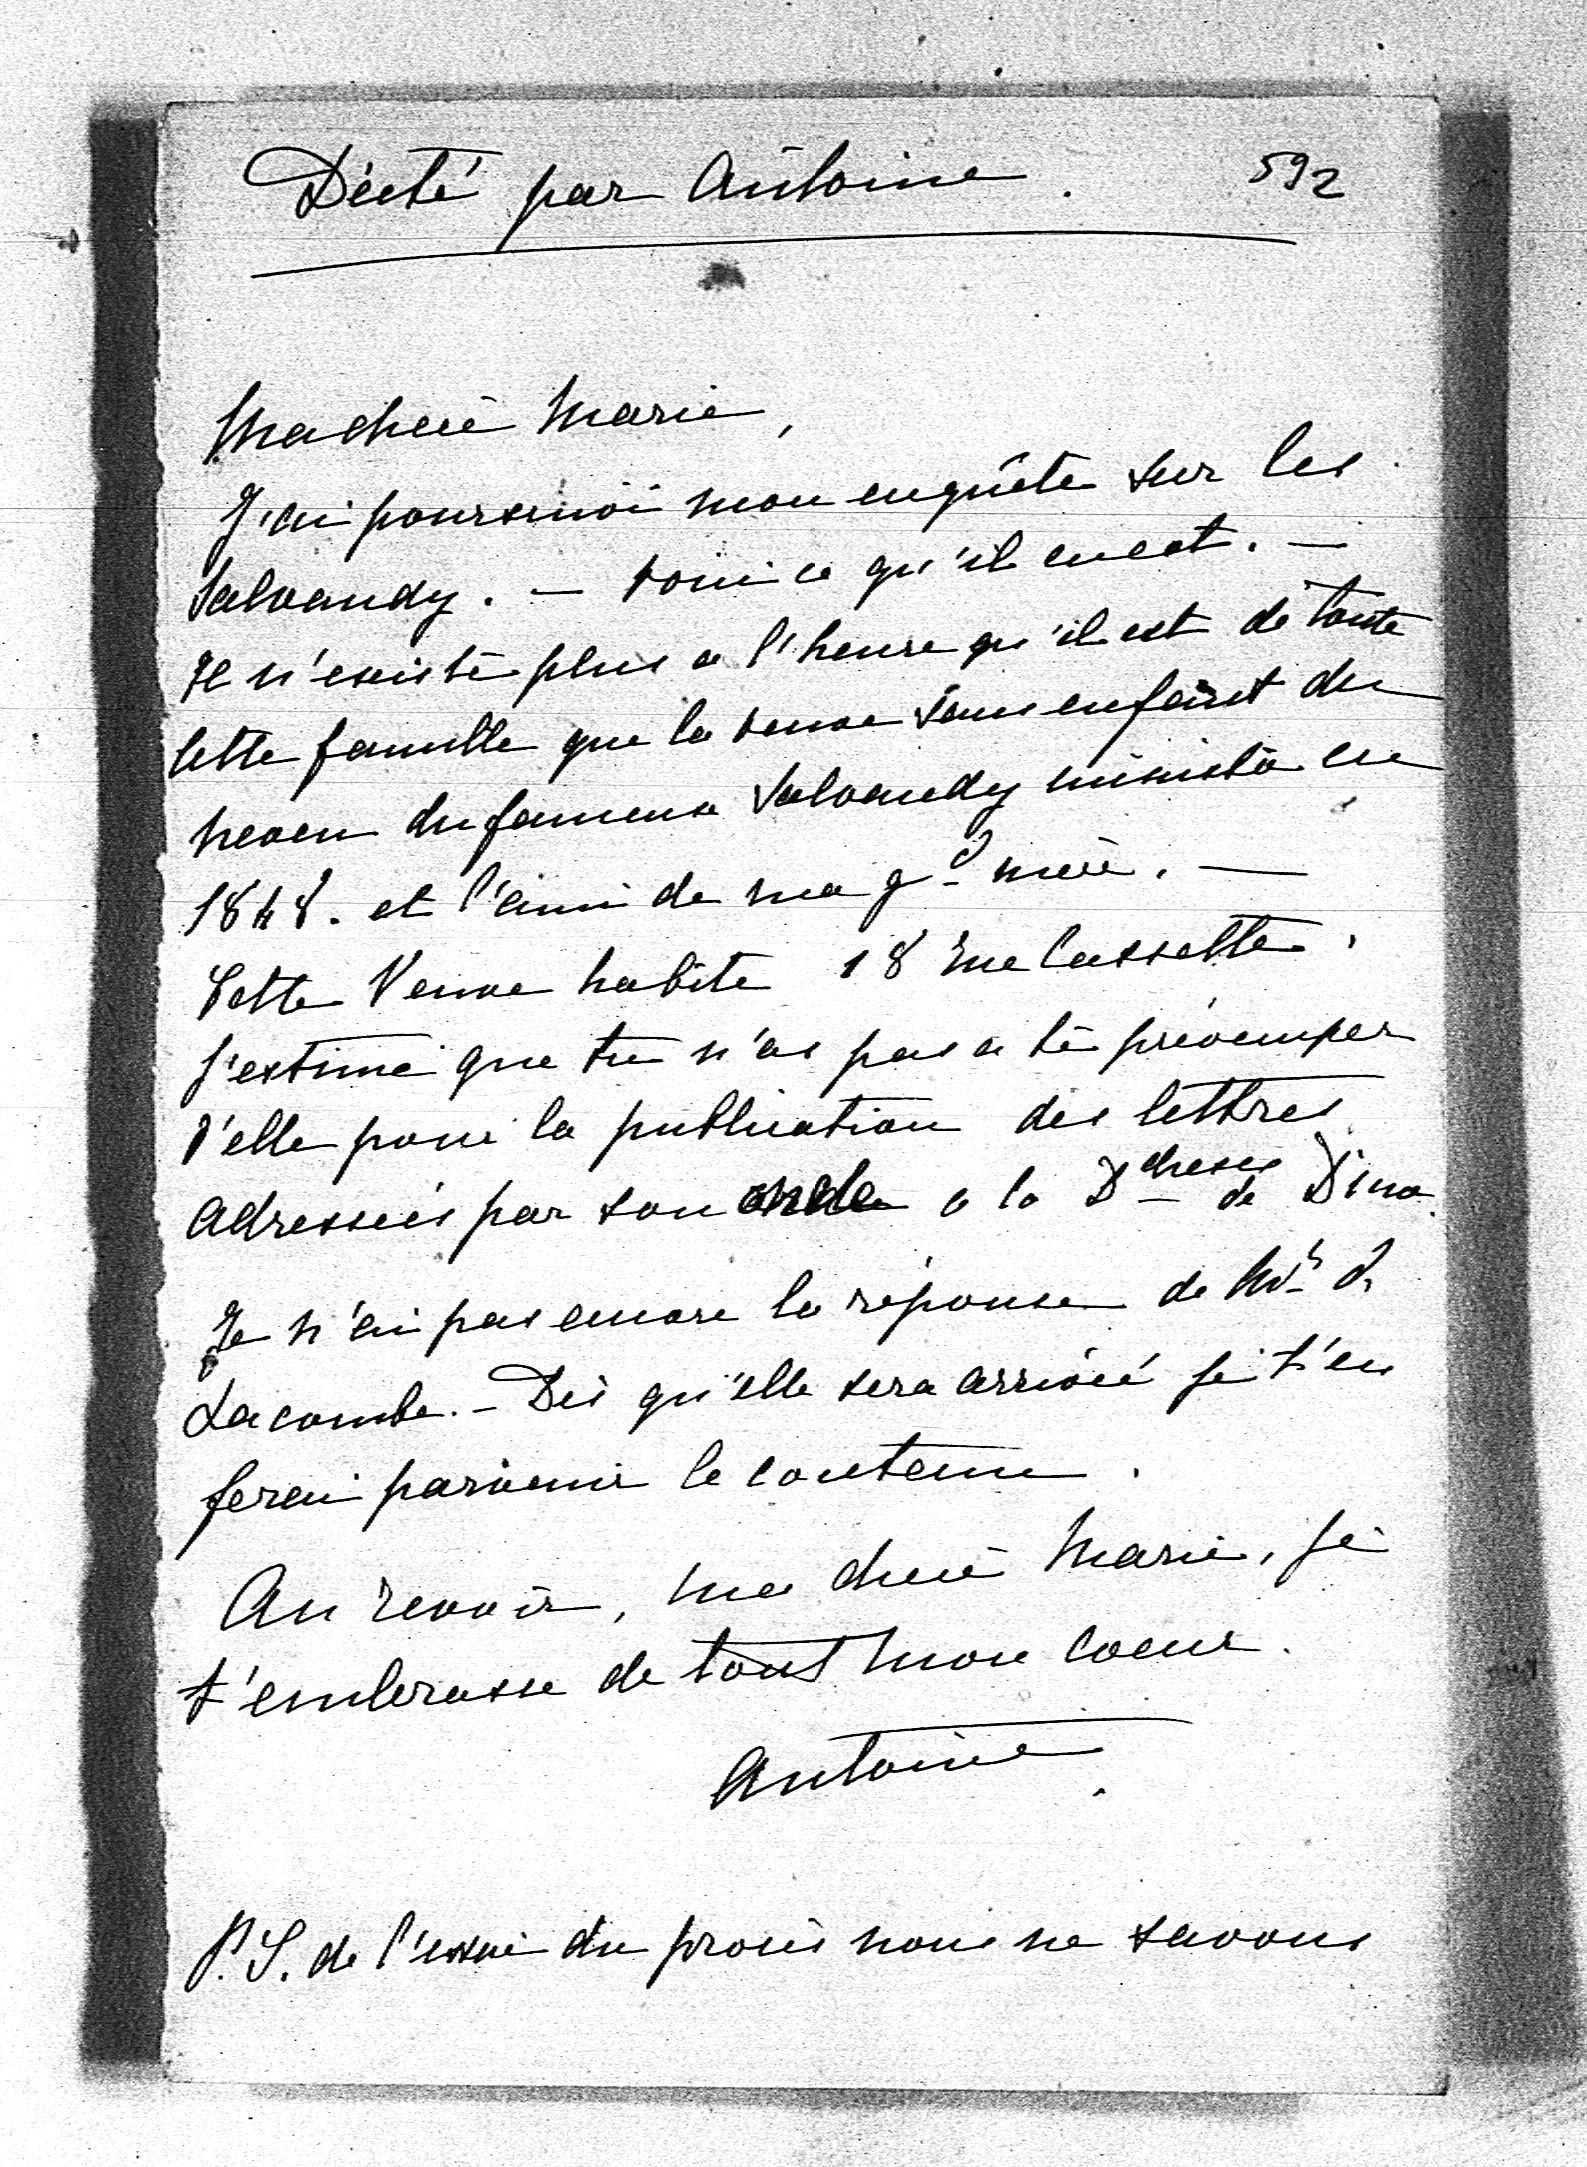 Dicté par Antoine.
592
Ma chère Marie,
J'ai poursuivi mon enquête sur les
Salvandy. — voici ce qu'il en est. —
Il n'existe plus a l'heure qu'il est de toute
cette famille que la veuve sans enfant du
neveu du fameux Salvandy ministre en
1848. et l'ami de ma gd mère. —
Cette Veuve habite 18 rue Cassette.
J'estime que tu n'as pas a te préoccuper
d'elle pour la publication des lettres
adressées par son oncle a la Dchesse de Dino.
Je n'ai pas encore la réponse de Mr de
Lacombe. — Dès qu'elle sera arrivée je t'en
ferai parvenir le contenu.
Au revoir, ma chère Marie, je
t'embrasse de tout mon coeur.
Antoine.
P.S. de l'issue du procès nous ne savons